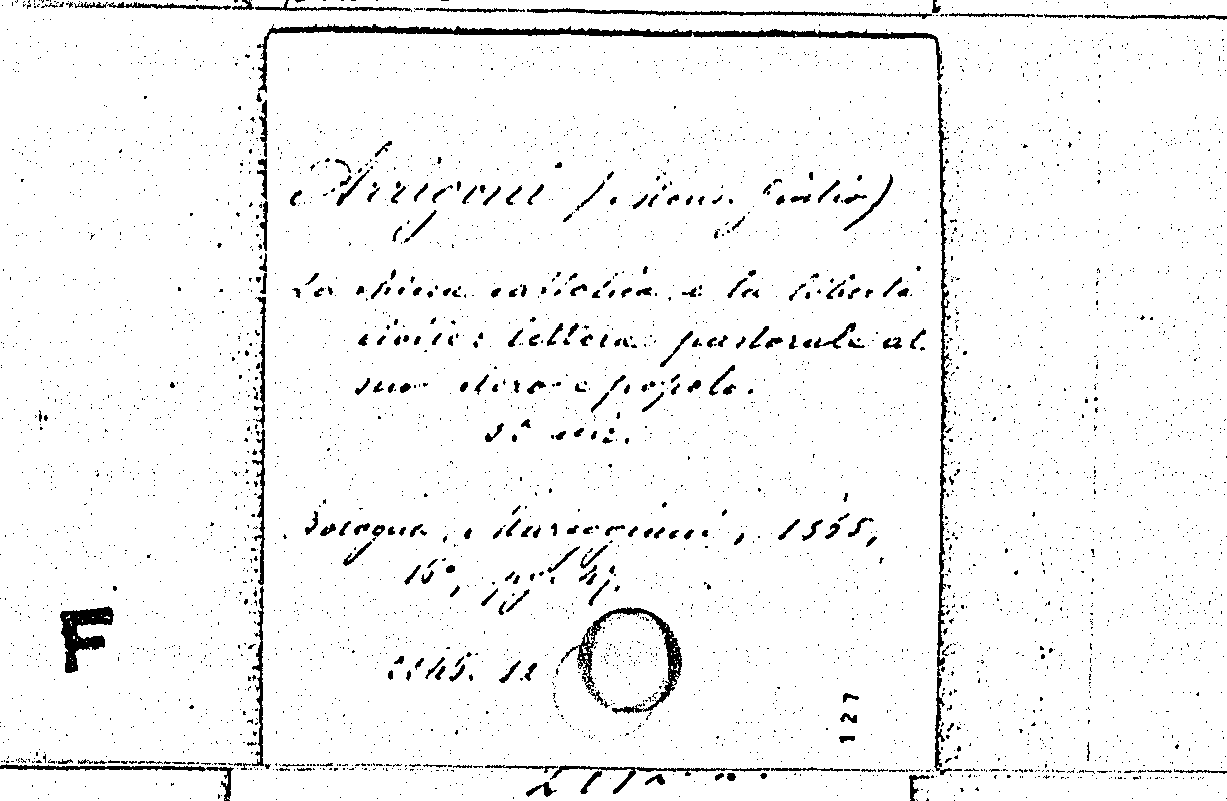 Arrigoni (Mons. Giulio)
La chiesa cattolica e la libertà
civile: lettera pastorale al
suo clero e popolo.
3ª ediz.
Bologna, Mareggiani, 1855,
16°, pp. 47.
F
127